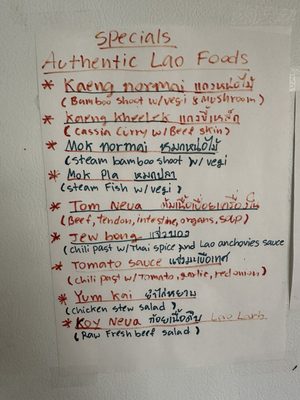 Specials
Authentic Lao Foods
* Kaeng normai แกงหน่อไม้
(Bamboo shoot w/vegi & Mushroom)
* Kaeng kheelek แกงขี้เหล็ก
(Cassia Curry w/Beef skin)
* Mok normai หมกหน่อไม้
(steam bamboo shoot w/vegi
* Mok Pla หมกปลา
(steam Fish w/vegi)
* Tom Neua
(Beef, Tendon, intestine, organs, soup)
* Jew bong แจ่วบอง
(chili past w/Thai spice and Lao anchovies sauce
* Tomato sauce แจ่วมะเขือเทศ
(chili past w/Tomato, garlic, red onion)
* Yum kai ยำไก่
(chicken stew salad)
* Koy Neua ก้อยเนื้อดิบ Lao Larb
(Raw Fresh beef salad)